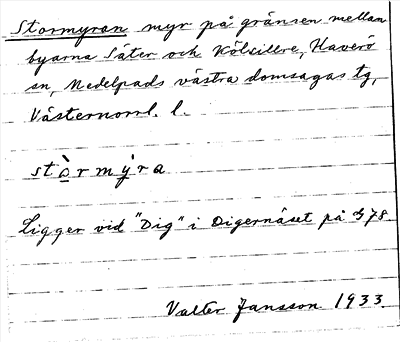 Stormyran myr på gränsen mellan
byarna Säter och Kölsillre, Haverö
sn, Medelpads västra domsagas tg,
Västernorrl. l.
stò̱rmỳ̱ra
Ligger vid "Dig" i Digernäset på G78
Valter Jansson 1933.